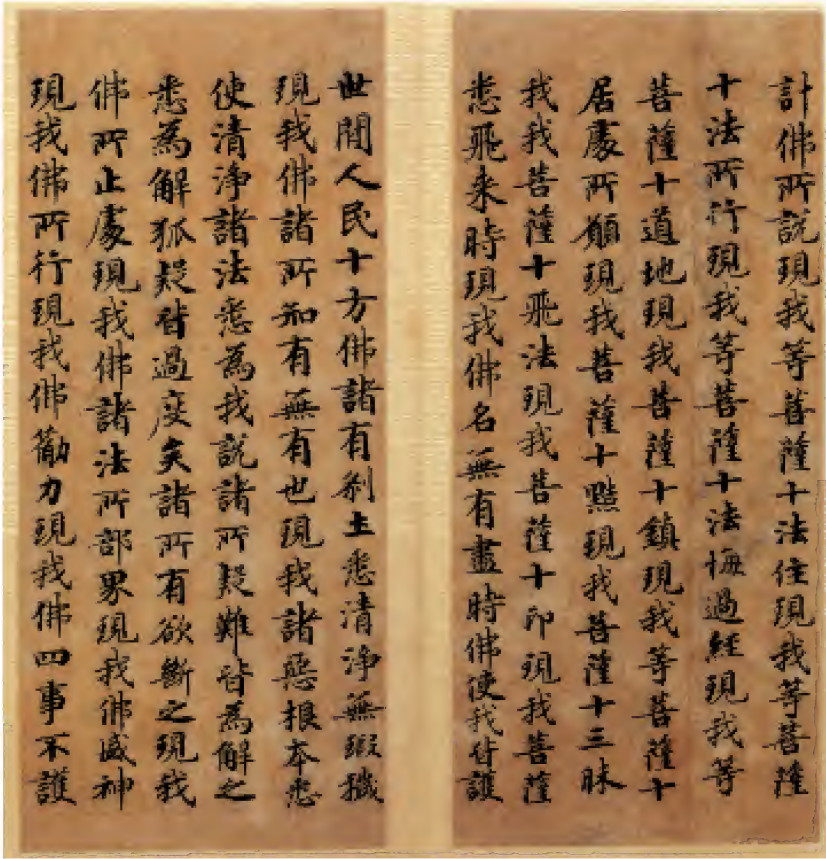 計佛所說現我等菩薩十法住現我等菩薩
十法所行現我等菩薩十法悔過經現我等
菩薩十道地現我菩薩十鎮現我等菩薩十
居處所願現我菩薩十黠現我菩薩十三昧
我我菩薩十飛法現我菩薩十印現我菩薩
悉飛来時現我佛名無有盡時佛使我皆護
世間人民十方佛諸有剎土悉清淨無瑕穢
現我佛諸所知有無有也現我諸惡根本悉
使清淨諸法悉為我說諸所疑難皆為解之
悉為解狐疑皆過度矣諸所有欲斷之現我
佛所止處現我佛諸法所部界現我佛威神
現我佛所行現我佛勸力現我佛四事不護